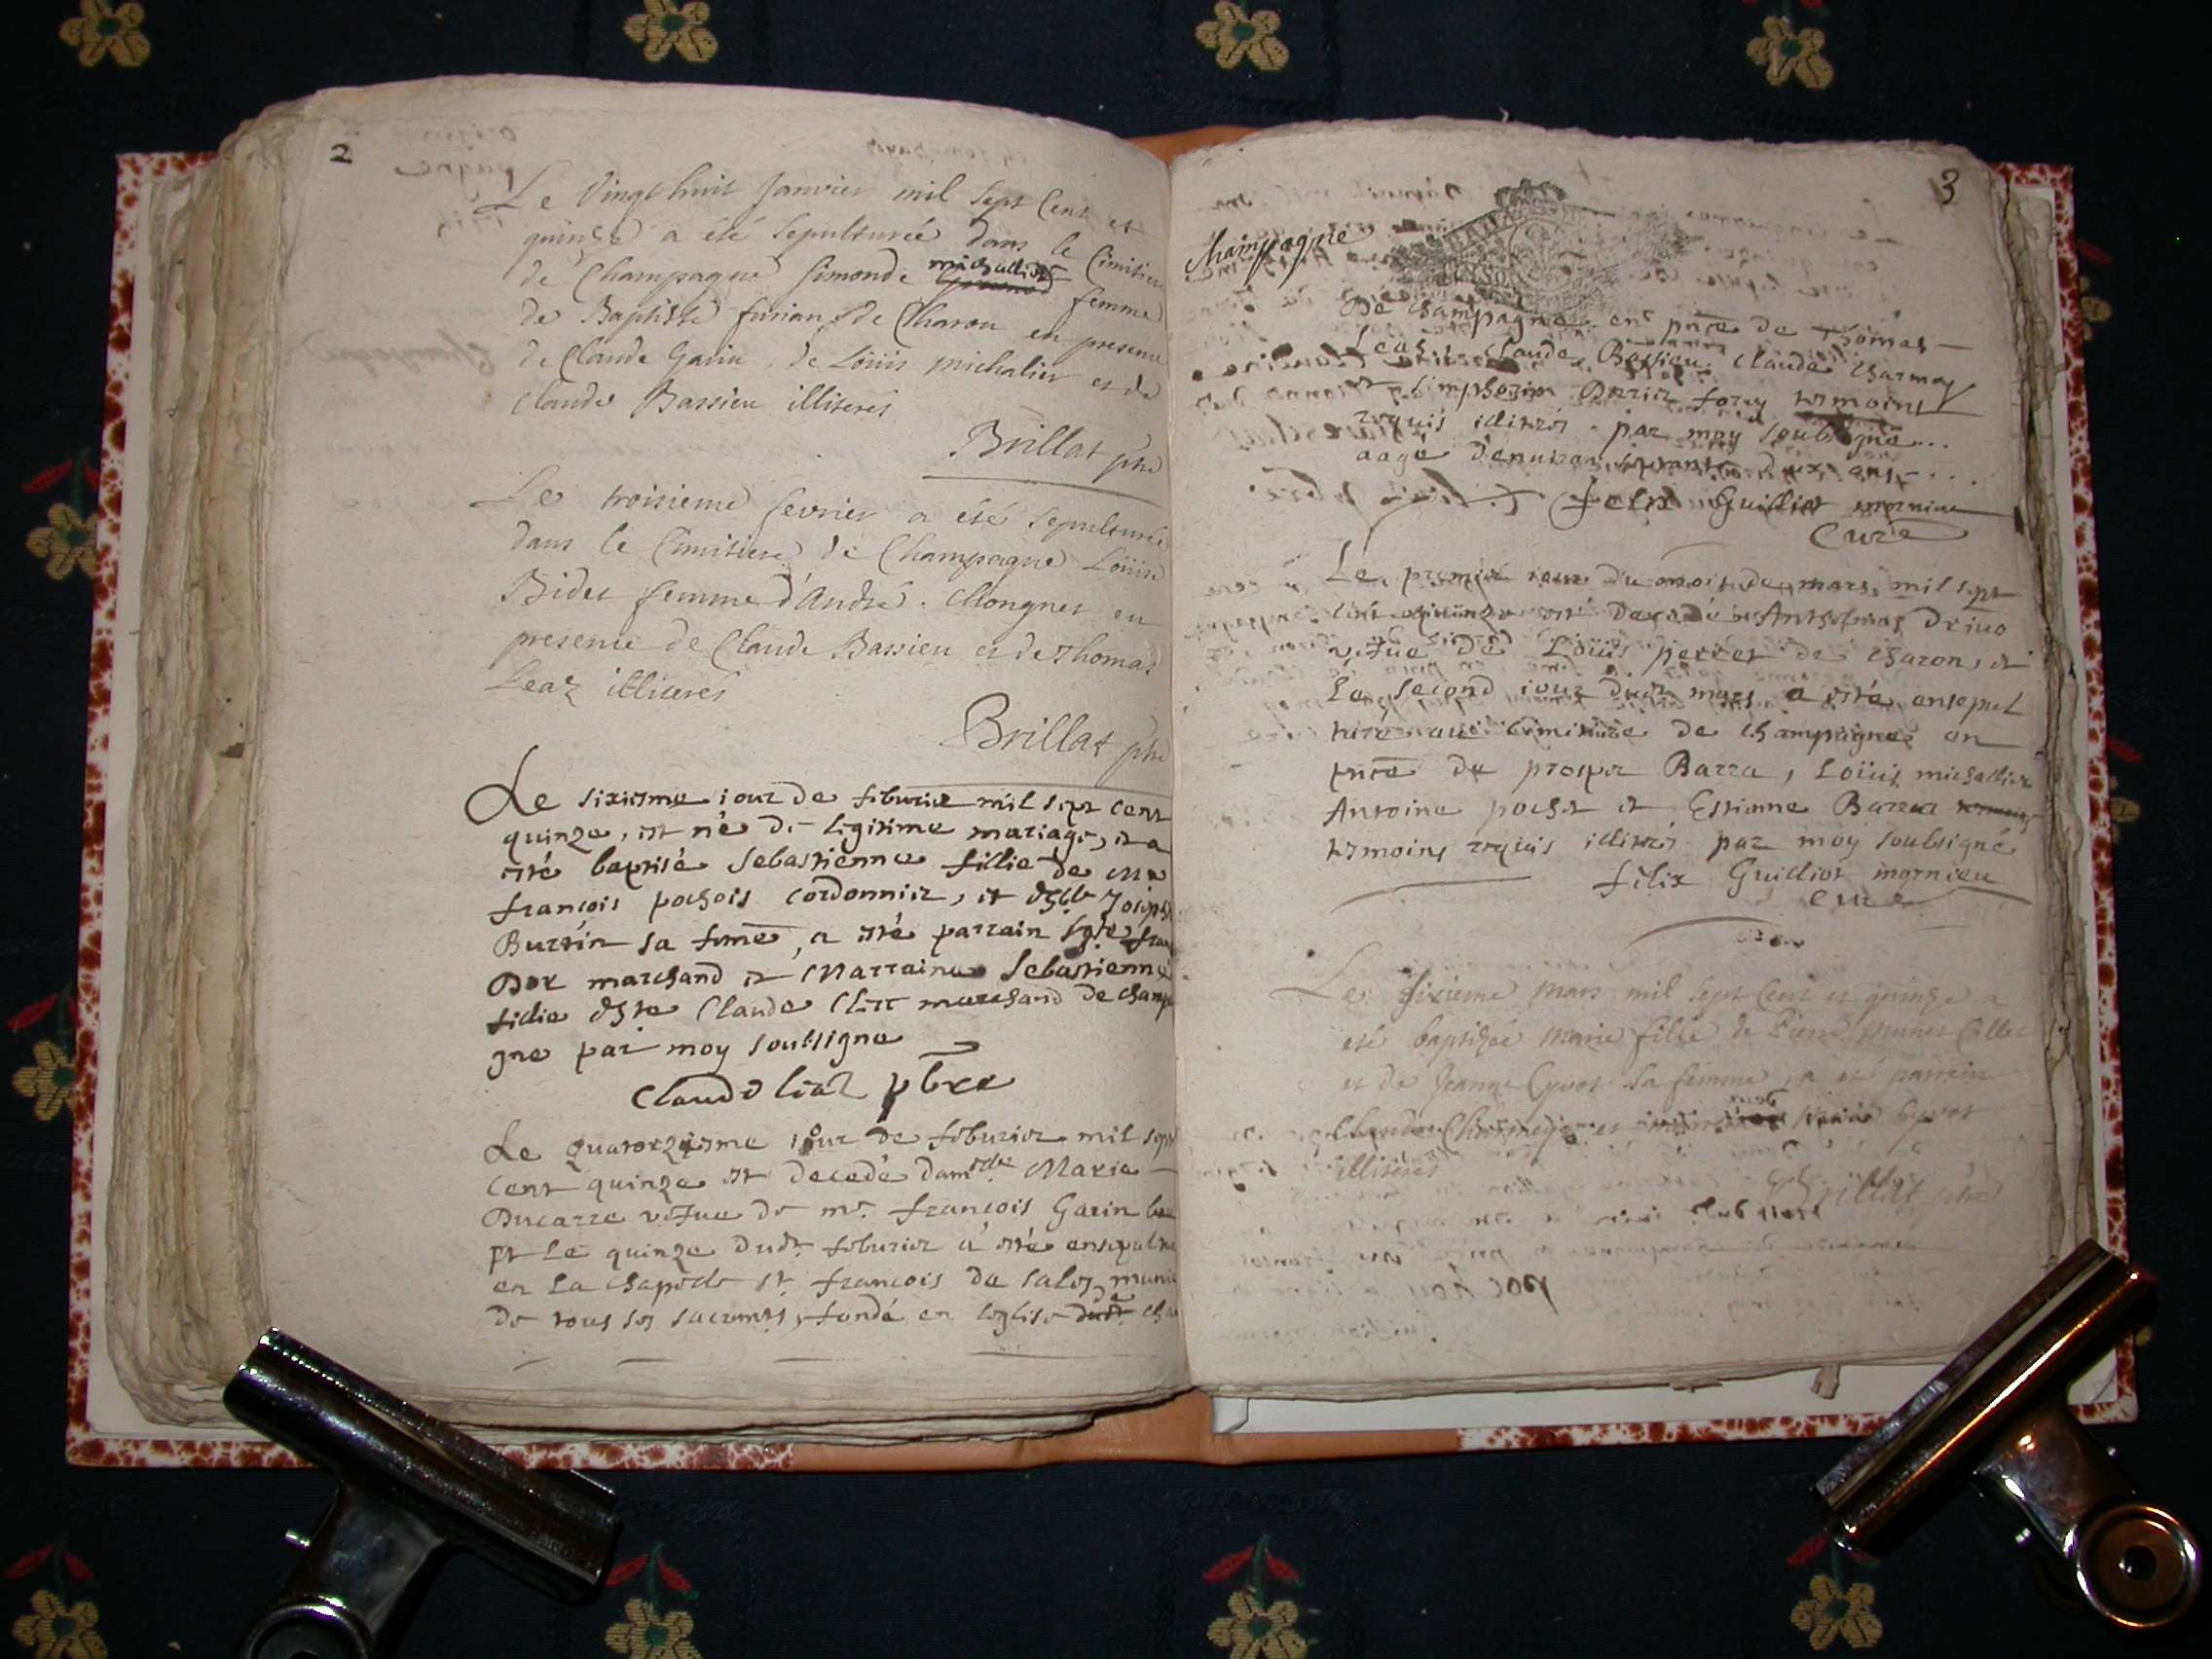 2
Le Vingt huit Janvier mil sept Cent et
quinze a été sepulturée dans le Cimitiere
de Champagne Simonde michallier femme
de Baptiste furian de Charon en presence
de Claude Garin, de Loüis michalier et de
Claude Bassieu illiterés
Brillat ptre
Le troisieme fevrier a eté sepulturée
dans le Cimitiere de Champagne Loüise
Bidet femme d'André Mongnet en
presence de Claude Bassieu et de Thomas
Leaz illiterés
Brillat ptre
Le sixiesme iour de feburier mil sept cent
quinze, est né de legitime mariage, et a
esté baptisé Sebastienne fillie de
françois pochois cordonnier, et Joseph
Burtin sa feme, a esté parrain
marchand et Marraine Sebastienne
fillie Claude marchand de champa
gne par moy soubsigne
Claude Liaz pbre
Le quatorziesme iour de feburier mil sept
cent quinze est decedé Marie
Ducarre vefue de mr. françois Garin
et Le quinze dudt. feburier a esté ensepultu
en la chapelle st. françois de sales, munie
de tous ses sacremts, fondé en leglise
3
Champagne
De Champagne en pnce de Thomas
Leas, Claude Bassieu Claude Charmoy
et simphorin forey temoins
requis illitrés par moy soubsigné
aagé d'enuiron septante deux ans
felix Guilliot mornieu
Curé
Le premier iour du mois de mars mil sept
cent quinze est decedé Anthoinaz
vefue de Loüis perret de charon, et
Le second iour dudt mars a esté ensepul
turé au cimitiere de Champagne en
pnce de prosper Barra, Loüis michallier
Antoine pochet et Estienne Barra
temoins requis illitrés par moy soubsigné
felix Guilliot mornieu
Curé
Le sixieme mars mil sept Cent et quinze a
eté baptizée marie fille de Pierre Collet
et de Jeanne Cyvot sa femme a eté parrein
illiterés
Brillat ptre